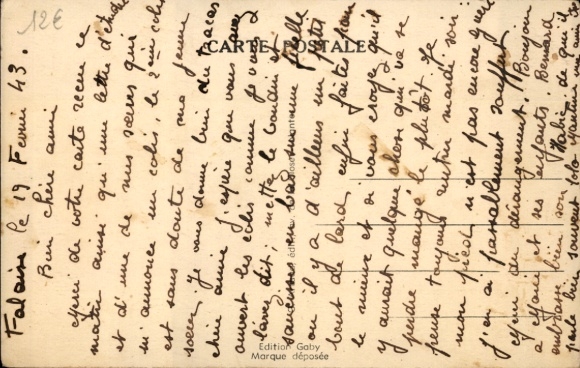 12€
CARTE POSTALE
Falaise le 19 Fevrier 43.
Bien chère amie
Merci de votre carte recue ce
matin ainsi qu'une lettre d'
et d'une de mes sœurs qui
m'annonce un colis, le 2em colis
est sans doute de ma jeune
soeur, je vous donne bien du tracas
chère amie j'espère que vous avez
ouvert les colis comme je vous
l'avez dit; mettez le boudin
saucisses en bas une
ou il y a d'ailleurs un petit
bout de lard, enfin faites pour
le mieux et si vous croyez qu'il
y aurait quelque chose qui va se
perdre mangez le plutôt. Je
pense toujours enfin mardi soir
mon pied n'est pas encore guéri
j'en ai passablement souffert.
Merci du dérangement. Bonjour
à et ses enfants. Bernard
embrasse bien son
parle bien souvent
Edition Gaby
Marque déposée